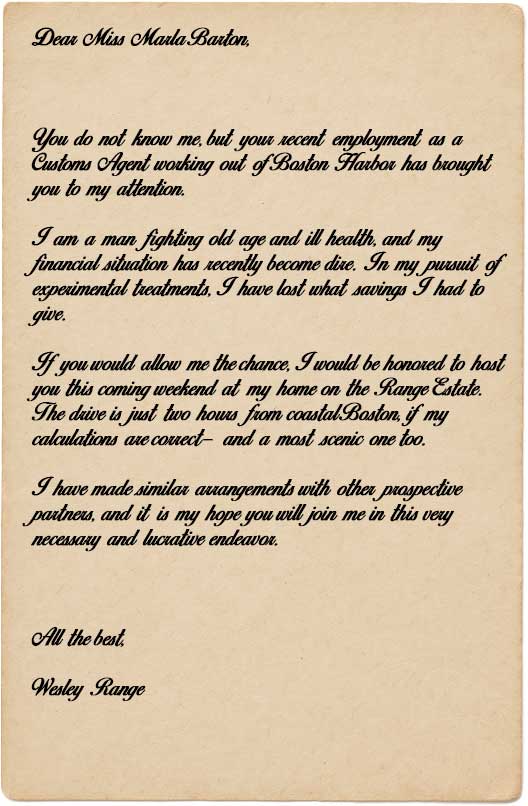 Dear Miss Marla Barton,
You do not know me, but your recent employment as a
Customs Agent working out of Boston Harbor has brought
you to my attention.
I am a man fighting old age and ill health, and my
financial situation has recently become dire. In my pursuit of
experimental treatments, I have lost what savings I had to
give.
If you would allow me the chance, I would be honored to host
you this coming weekend at my home on the Range Estate.
The drive is just two hours from coastal Boston, if my
calculations are correct— and a most scenic one too.
I have made similar arrangements with other prospective
partners, and it is my hope you will join me in this very
necessary and lucrative endeavor.
All the best,
Wesley Range